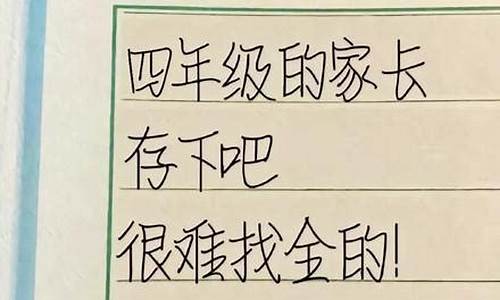 四年级的家长
存下吧
很难找全的!